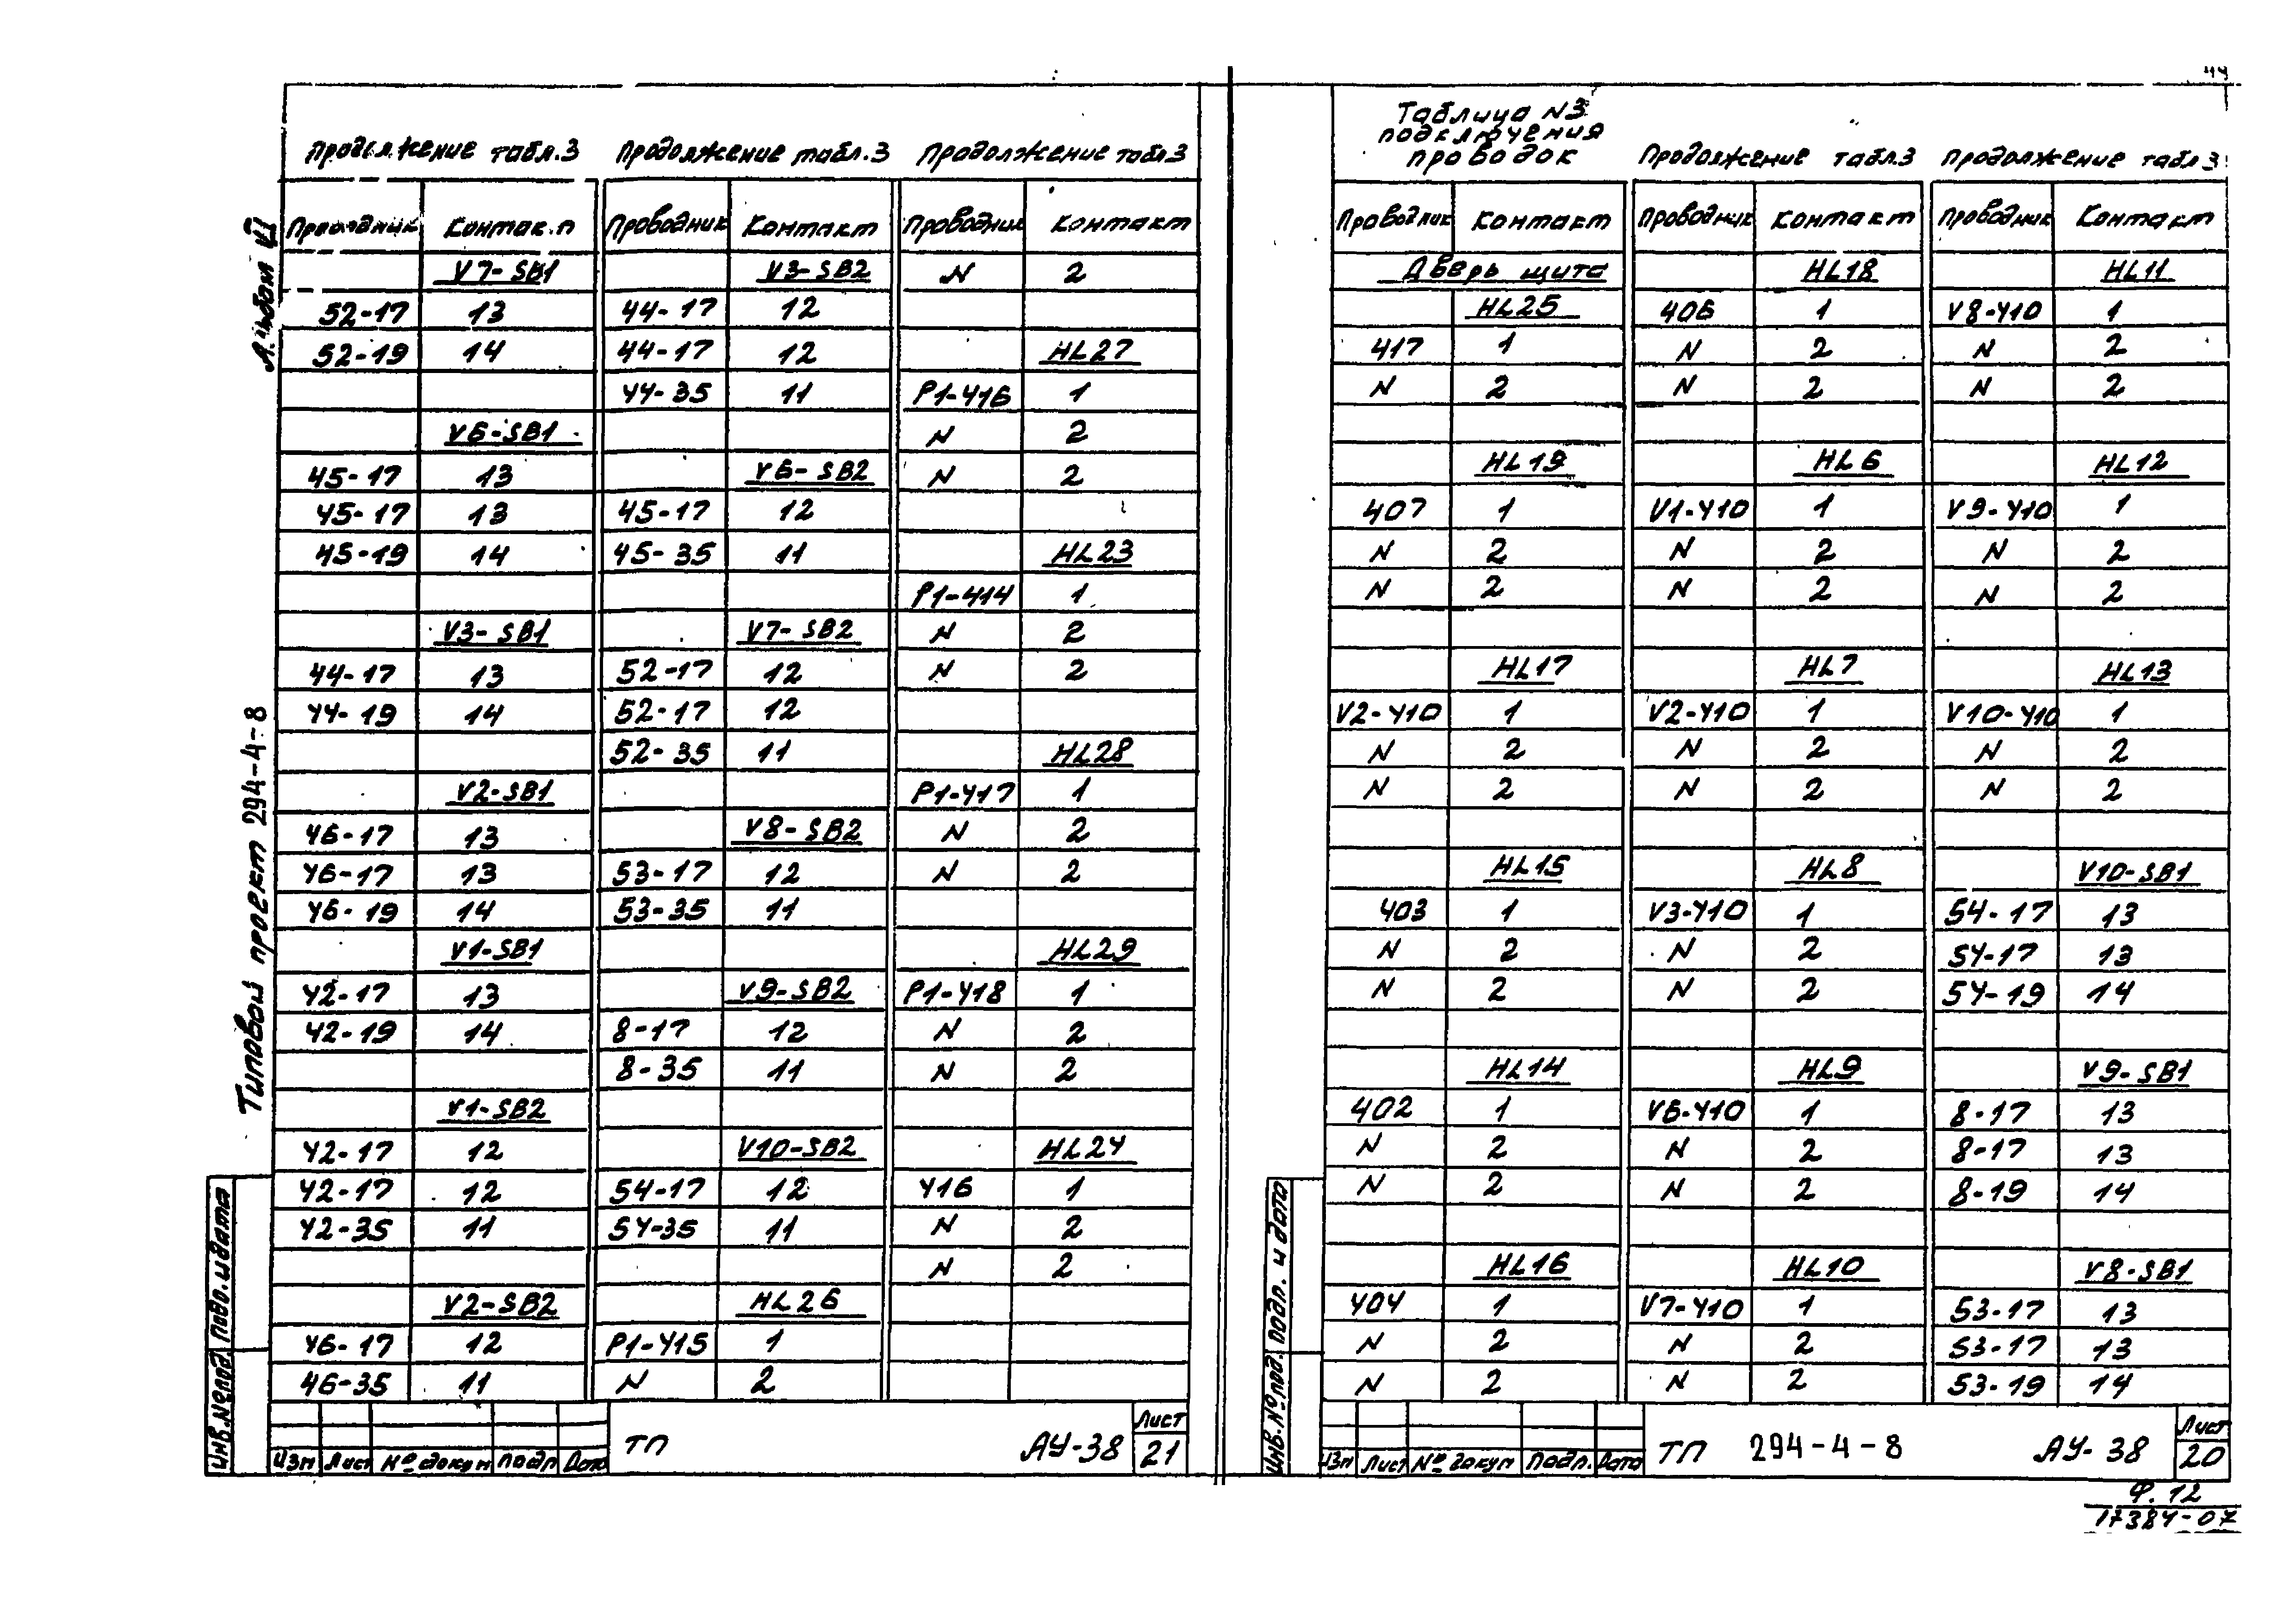 44
Альбом VI
Типовой проект 294-4-8
Продолжение табл.3
Проводник Контакт
V7-SB1
52-17 13
52-19 14
V6-SB1
45-17 13
45-17 13
45-19 14
V3-SB1
44-17 13
44-19 14
V2-SB1
46-17 13
46-17 13
46-19 14
V1-SB1
42-17 13
42-19 14
V1-SB2
42-17 12
42-17 12
42-35 11
V2-SB2
46-17 12
46-35 11
Продолжение табл.3
Проводник Контакт
V3-SB2
44-17 12
44-17 12
44-35 11
V6-SB2
45-17 12
45-35 11
V7-SB2
52-17 12
52-17 12
52-35 11
V8-SB2
53-17 12
53-35 11
V9-SB2
8-17 12
8-35 11
V10-SB2
54-17 12
54-35 11
HL26
P1-415 1
N 2
Продолжение табл.3
Проводник Контакт
N 2
HL27
P1-416 1
N 2
N 2
HL23
P1-414 1
N 2
N 2
HL28
P1-417 1
N 2
N 2
HL29
P1-418 1
N 2
N 2
HL24
416 1
N 2
N 2
Инв.№подл. Подп. и дата
Изм Лист № докум Подп Дата
ТП АУ-38
Лист
21
Таблица N3
подключения
проводок
Проводник Контакт
Дверь щита
HL25
417 1
N 2
HL19
407 1
N 2
N 2
HL17
V2-410 1
N 2
N 2
HL15
403 1
N 2
N 2
HL14
402 1
N 2
N 2
HL16
404 1
N 2
N 2
Продолжение табл.3
Проводник Контакт
HL18
406 1
N 2
N 2
HL6
V1-410 1
N 2
N 2
HL7
V2-410 1
N 2
N 2
HL8
V3-410 1
N 2
N 2
HL9
V6-410 1
N 2
N 2
HL10
V7-410 1
N 2
N 2
Продолжение табл 3
Проводник Контакт
HL11
V8-410 1
N 2
N 2
HL12
V9-410 1
N 2
N 2
HL13
V10-410 1
N 2
N 2
V10-SB1
54-17 13
54-17 13
54-19 14
V9-SB1
8-17 13
8-17 13
8-19 14
V8-SB1
53-17 13
53-17 13
53-19 14
Инв.№подл. Подп. и дата
Изм Лист № докум Подп. Дата
ТП 294-4-8 АУ-38
Лист
20
Ф.12
17384-07